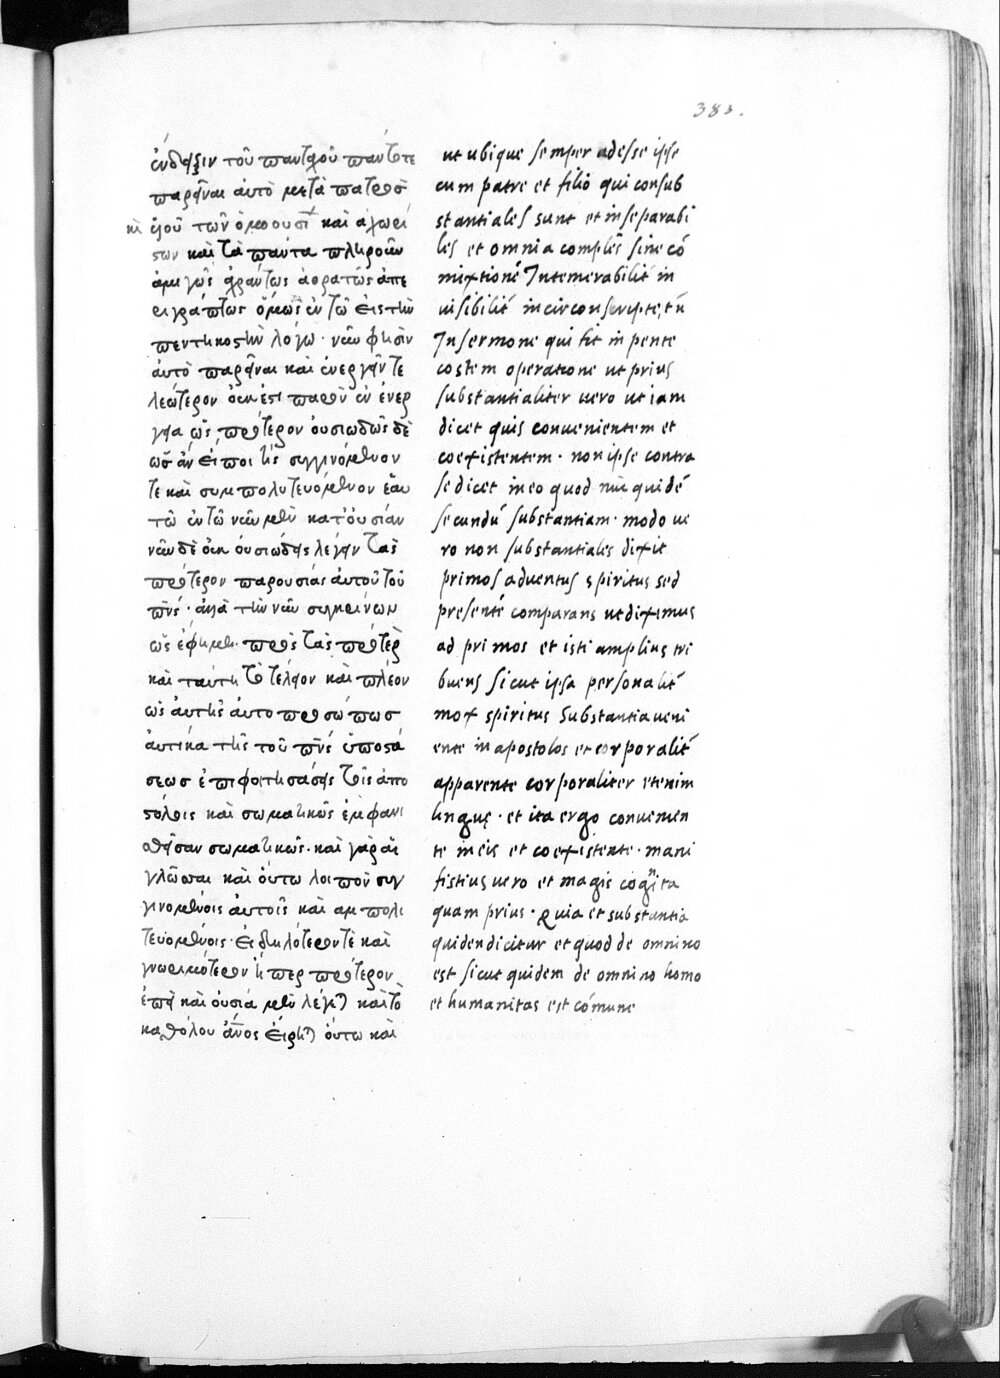 383.
ἐνδεῖξιν τοῦ πανταχοῦ πάντοτε
παρεῖναι αὐτὸ μετὰ πατρὸσ
κὶ υἱοῦ τῶν ὁμοουσί καὶ ἀχωρί
στων καὶ τὰ πάντα πληροῦν
ἀμιγῶς ἀχράντως ἀορατῶς ἀπε
ριγράπτως ὅμως ἐν τῶ εἰς τὴν
πεντηκοστὴν λόγω· νῦν φησὶν
αὐτὸ παρεῖναι καὶ ἐνεργεῖν τε
λεώτερον οὐκ ἔτι παρὸν ἐν ἐνερ
γεία ὡς πρότερον οὐσιωδῶς δὲ
ὡσ ἂν εἴποι τίς συγγινόμενον
τε καὶ συμπολιτευόμενον ἑαυ
τῶ ἐν τῶ νῦν μὲν κατ' οὐσίαν
νῦν δὲ οὐκ οὐσιώδεις λέγειν τὰς
πρότερον παρουσίας αὐτοῦ τοῦ
πν̅ς· ἀλλὰ τὴν νῦν συγκρίνων
ὡς ἔφημεν· πρὸς τὰς προτέρ
καὶ ταύτη τὸ τελεῖον καὶ πλέον
ὡς αὐτῆς αὐτοπροσώπωσ
αὐτίκα τῆς τοῦ πν̅ς ὑποστά
σεωσ ἐπιφοιτησάσης τοῖς ἀπο
στόλοις καὶ σωματικῶς ἐμφανι
θεῖσαν σωματικῶς· καὶ γὰρ αἱ
γλῶσσαι καὶ οὕτω λοιπὸν συγ
γινομένοις αὐτοῖς καὶ συμπολι
τευομένοις· εἰδηλότερον τὲ καὶ
γνωριμότερον ἥπερ πρότερον
ἐπεὶ καὶ οὐσιά μὲν λέγετ καὶ τὸ
καθόλου ἄνος εἴρητ οὕτω καὶ
ut ubique semper adesse ipse
cum patre et filio qui consub
stantiales sunt et inseparabi
les et omnia complēs sine cō
mixtionē Intemerabilit̄ in
uisibilit̄ incirconscripte, tn̄
In sermone qui fit in pente
costem operatione ut prius
substantialiter uero ut iam
dicet quis conuenientem et
coexistentem· non ipse contra
se dicet in eo quod nūc quidē
secundū substantiam· modo ue
ro non substantiales dixit
primos aduentus spiritus sed
presentē comparans ut diximus
ad primos et isti amplius tri
buens sicut ipsa personalit̄
mox spiritus substantia ueni
ente in apostolos et corporalit̄
apparente corporaliter etenim
linguę· et ita ergo conuenien
te in eis et coexistente· mani
fistius uero et magis cognita
quam prius· quia et substantia
quiden dicitur et quod de omnino
est sicut quidem de omnino homo
et humanitas est cōmune